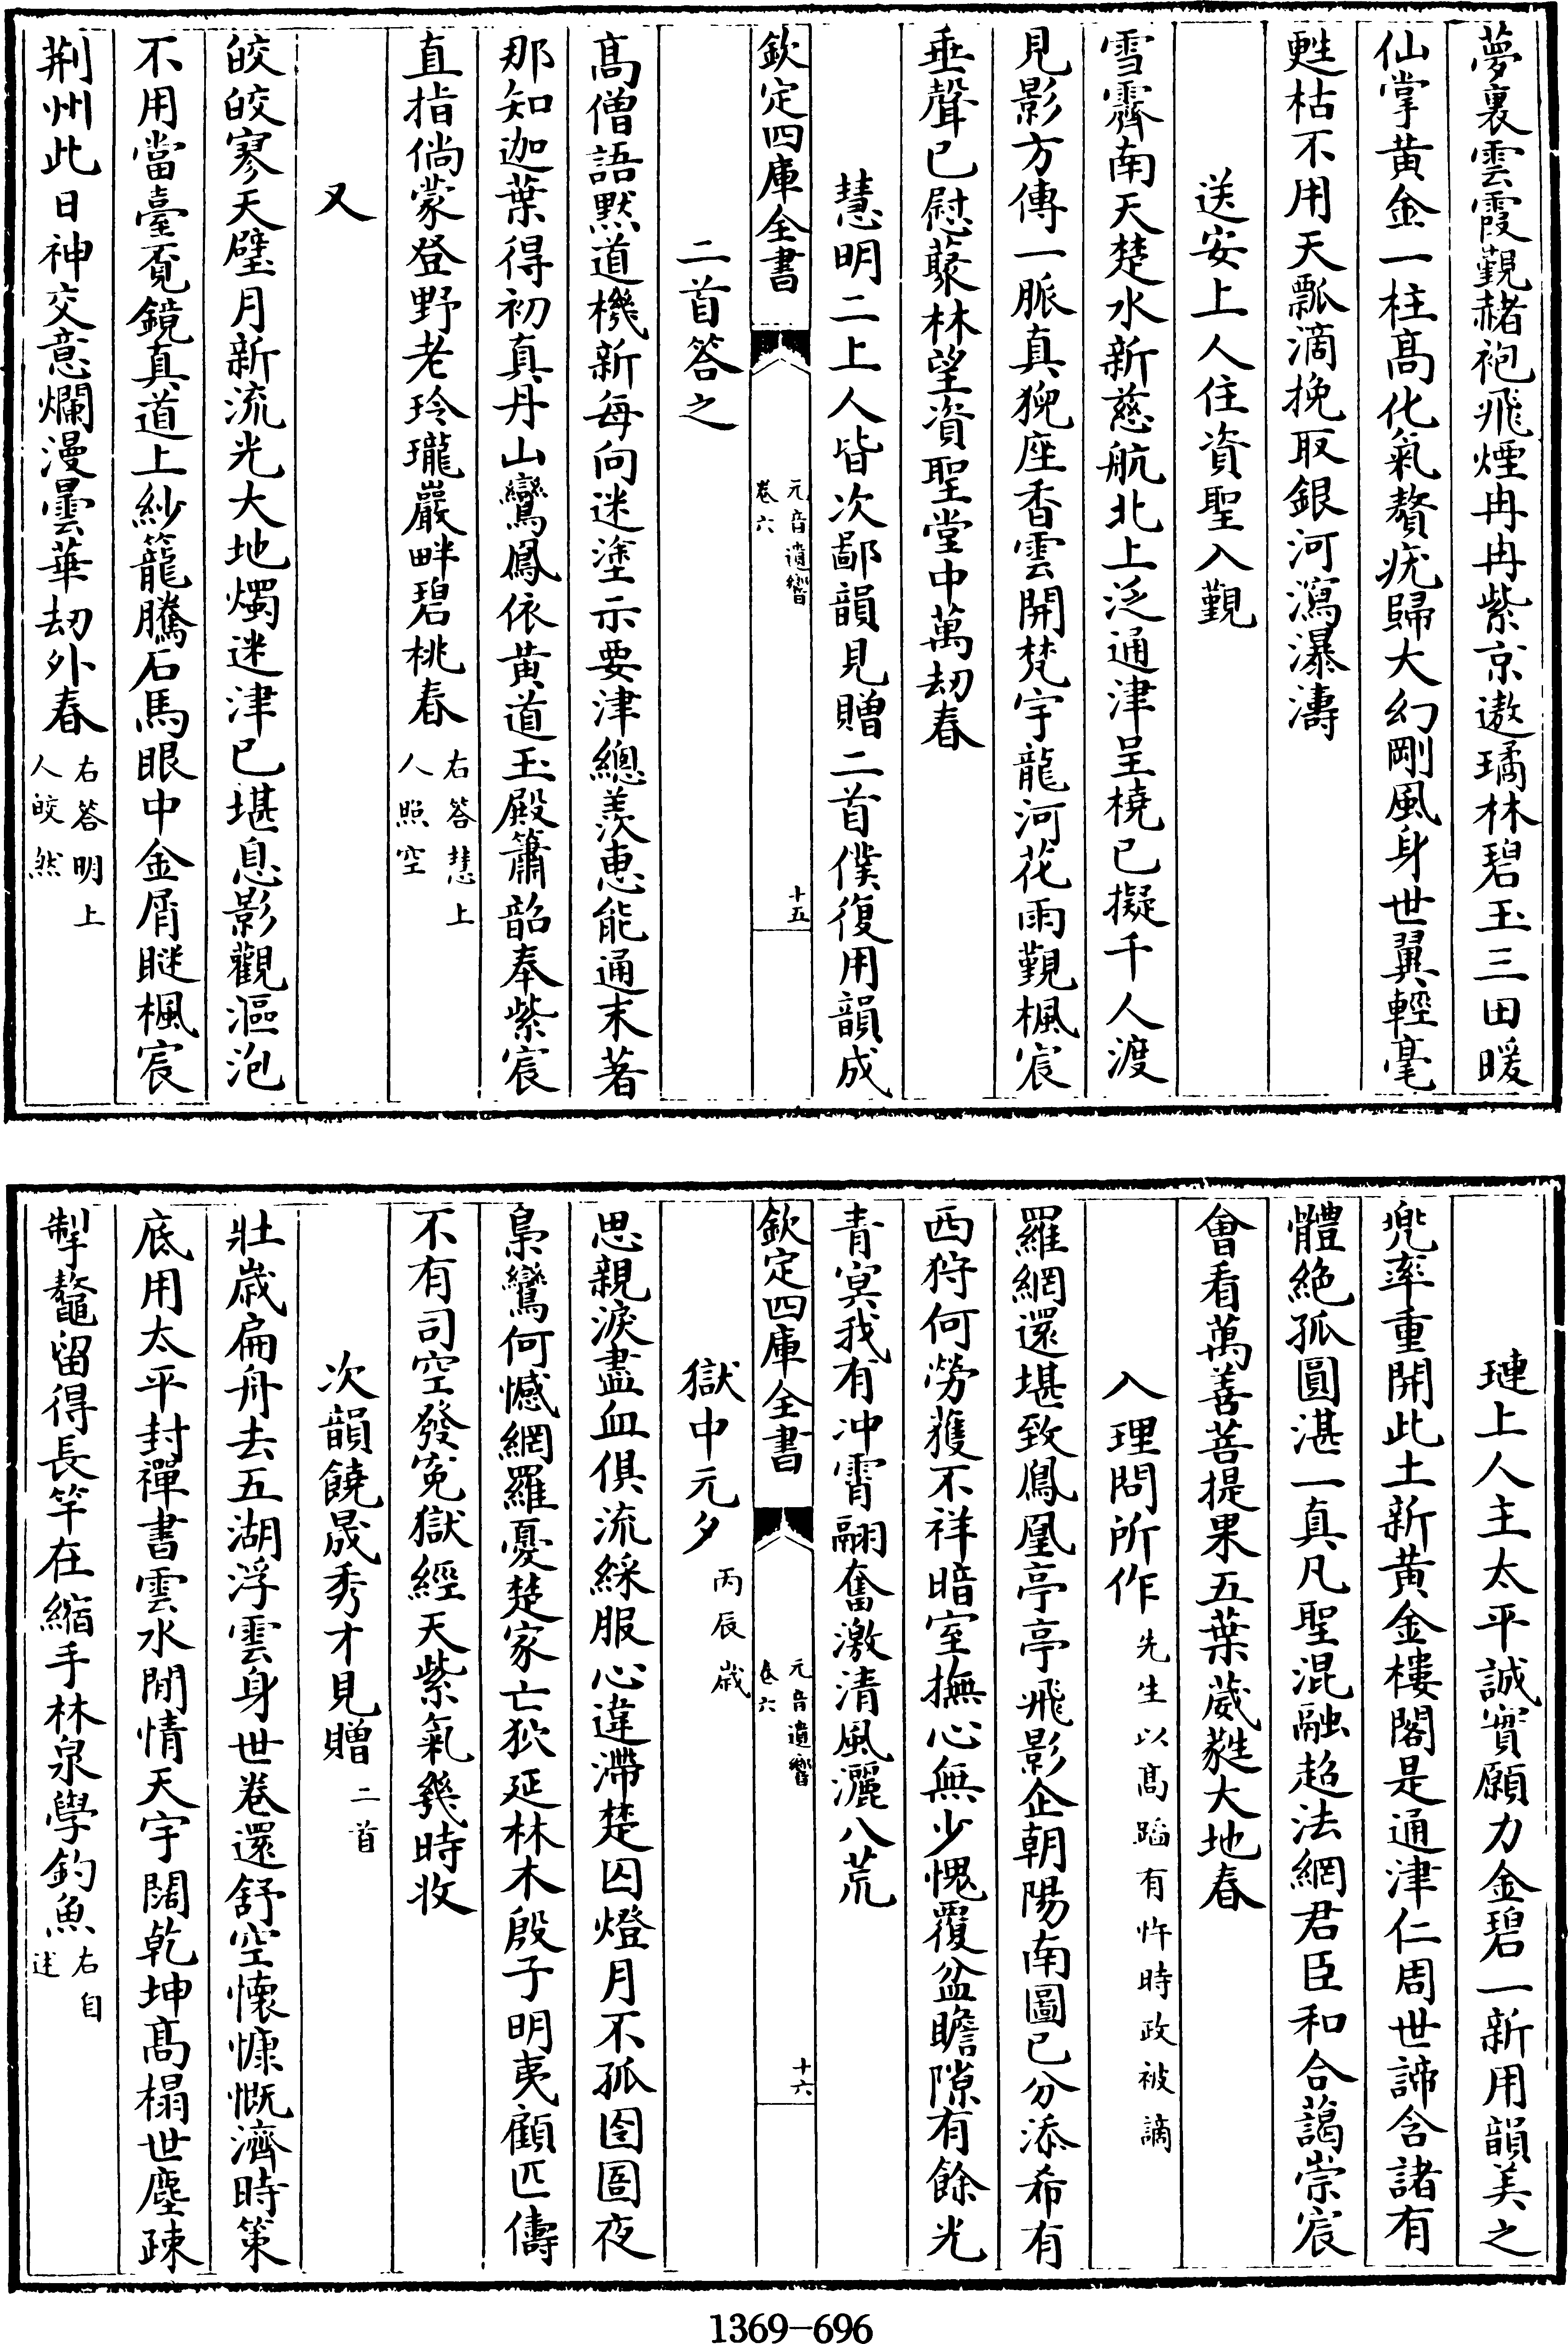 夢裏雲霞覲赭袍飛煙冉冉紫京遨璚林碧玉三田暖
仙掌黄金一柱髙化氣贅疣歸大幻剛風身世翼輕毫
甦枯不用天瓢滴挽取銀河瀉瀑濤
送安上人住資聖入覲
雪霽南天楚水新慈航北上泛通津呈橈已擬千人渡
見影方傳一脈真猊座香雲開梵宇龍河花雨覲楓宸
垂聲已慰藂林望資聖堂中萬劫春
慧明二上人皆次鄙韻見贈二首僕復用韻成
欽定四庫全書
元音遺響
卷六
十五
二首答之
髙僧語默道機新每向迷塗示要津總羡恵能通末著
那知迦葉得初真丹山鸞鳳依黄道玉殿簫韶奉紫宸
直指倘蒙登野老玲瓏巖畔碧桃春右答慧上人照空
又
皎皎寥天璧月新流光大地燭迷津已堪息影觀漚泡
不用當臺覔鏡真道上紗籠騰石馬眼中金屑瞇楓宸
荆州此日神交意爛漫曇華劫外春右答明上人皎然
璉上人主太平誠實願力金碧一新用韻美之
兠率重開此土新黄金樓閣是通津仁周世諦含諸有
體絶孤圓湛一真凡聖混融超法網君臣和合藹崇宸
㑹看萬善菩提果五葉葳蕤大地春
入理問所作先生以髙蹈有忤時政被謫
羅網還堪致鳳凰亭亭飛影企朝陽南圖已分添希有
西狩何勞獲不祥暗室撫心無少愧覆盆瞻隙有餘光
青冥我有冲霄翮奮激清風灑八荒
欽定四庫全書
元音遺響
卷六
十六
獄中元夕丙辰歳
思親淚盡血俱流綵服心違滯楚囚燈月不孤囹圄夜
梟鸞何憾網羅憂楚家亡猨延林木殷子明夷顧匹儔
不有司空發寃獄經天紫氣㡬時收
次韻饒晟秀才見贈二首
壯歳扁舟去五湖浮雲身世卷還舒空懐慷慨濟時策
底用太平封禪書雲水閒情天宇闊乾坤髙榻世塵疎
掣鼇留得長竿在縮手林泉學釣魚右自述
1369-696